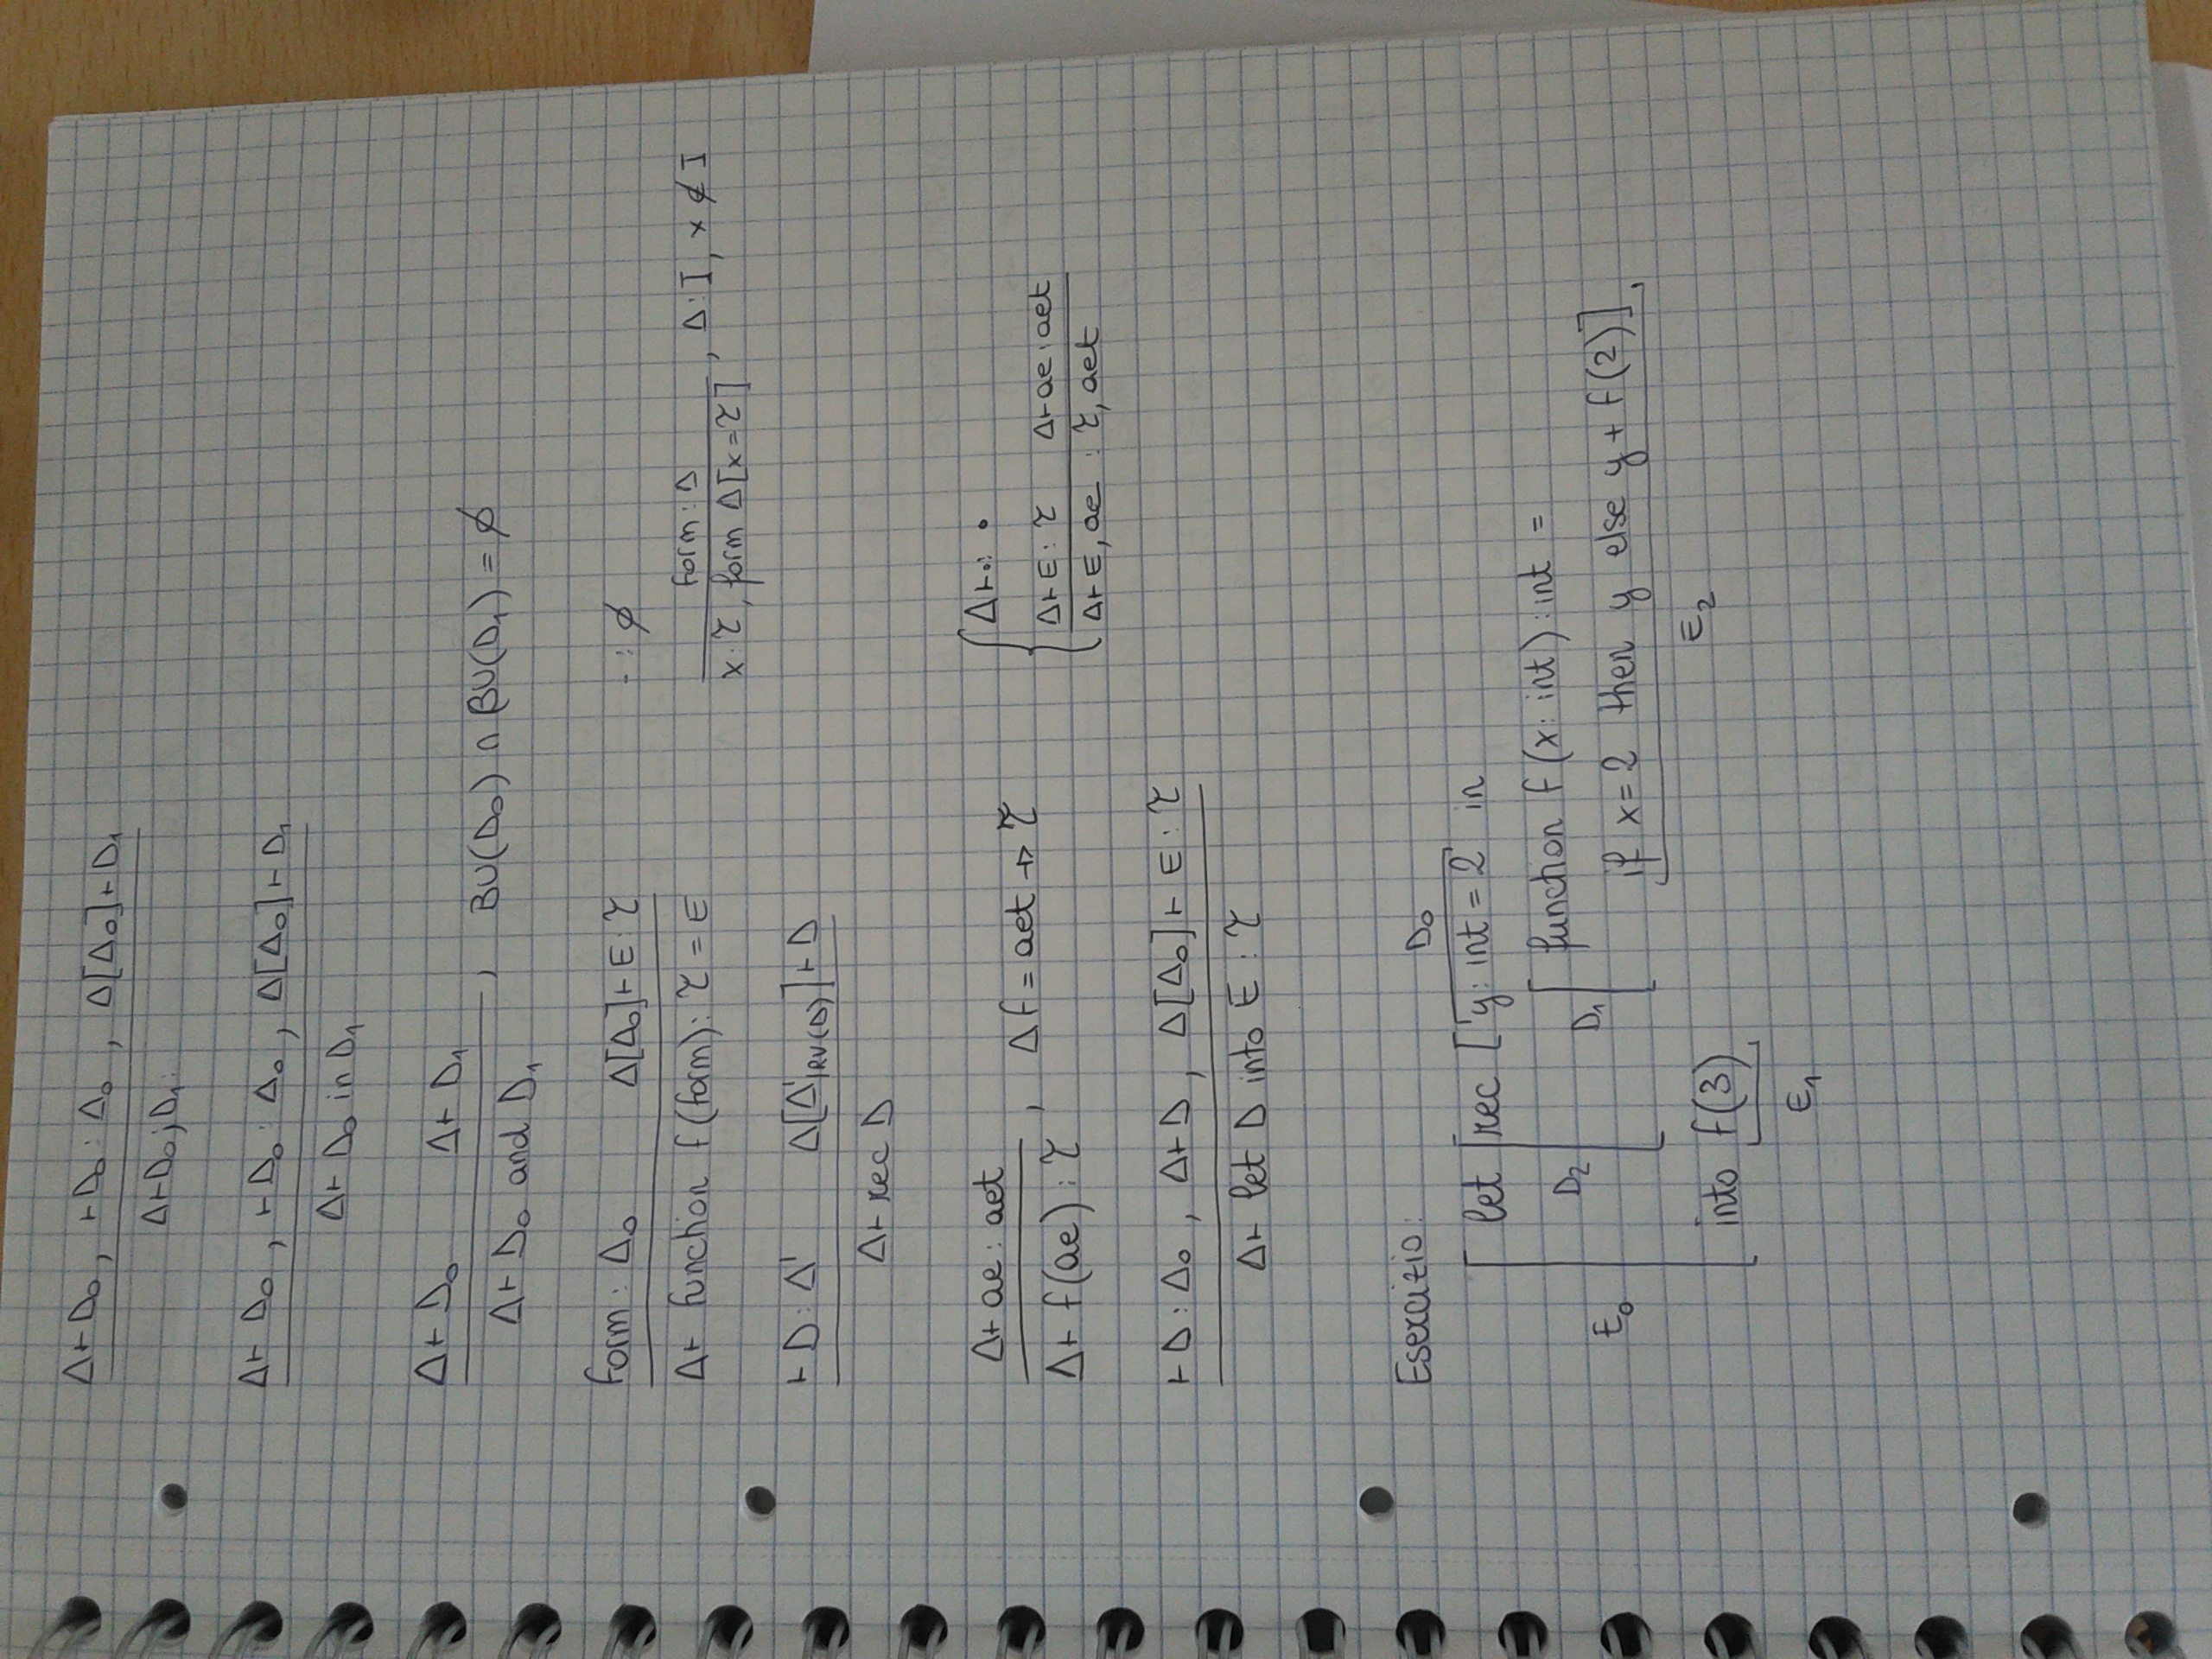 Δ⊢D₀, ⊢D₀:Δ₀, Δ[Δ₀]⊢D₁
Δ⊢D₀;D₁
Δ⊢D₀, ⊢D₀:Δ₀, Δ[Δ₀]⊢D₁
Δ⊢D₀ in D₁
Δ⊢D₀ Δ⊢D₁
Δ⊢D₀ and D₁ , BV(D₀) ∩ BV(D₁) = ∅
form: Δ₀ Δ[Δ₀]⊢E:τ
Δ⊢ function f(form): τ = E
·: ∅
form: Δ
x:τ, form Δ[x=τ] , Δ:I, x∉I
⊢D:Δ' Δ[Δ'|RV(D)]⊢D
Δ⊢rec D
Δ⊢ae: aet
Δ⊢f(ae): τ , Δf = aet → τ
Δ⊢·: ·
Δ⊢E:τ Δ⊢ae:aet
Δ⊢E, ae : τ, aet
⊢D:Δ₀, Δ⊢D, Δ[Δ₀]⊢E:τ
Δ⊢ let D into E : τ
Esercizio:
D₀
let [rec [y: int = 2 in
D₂ D₁ function f(x: int): int =
E₀ if x=2 then y else y + f(2)]
E₂
into f(3)
E₁